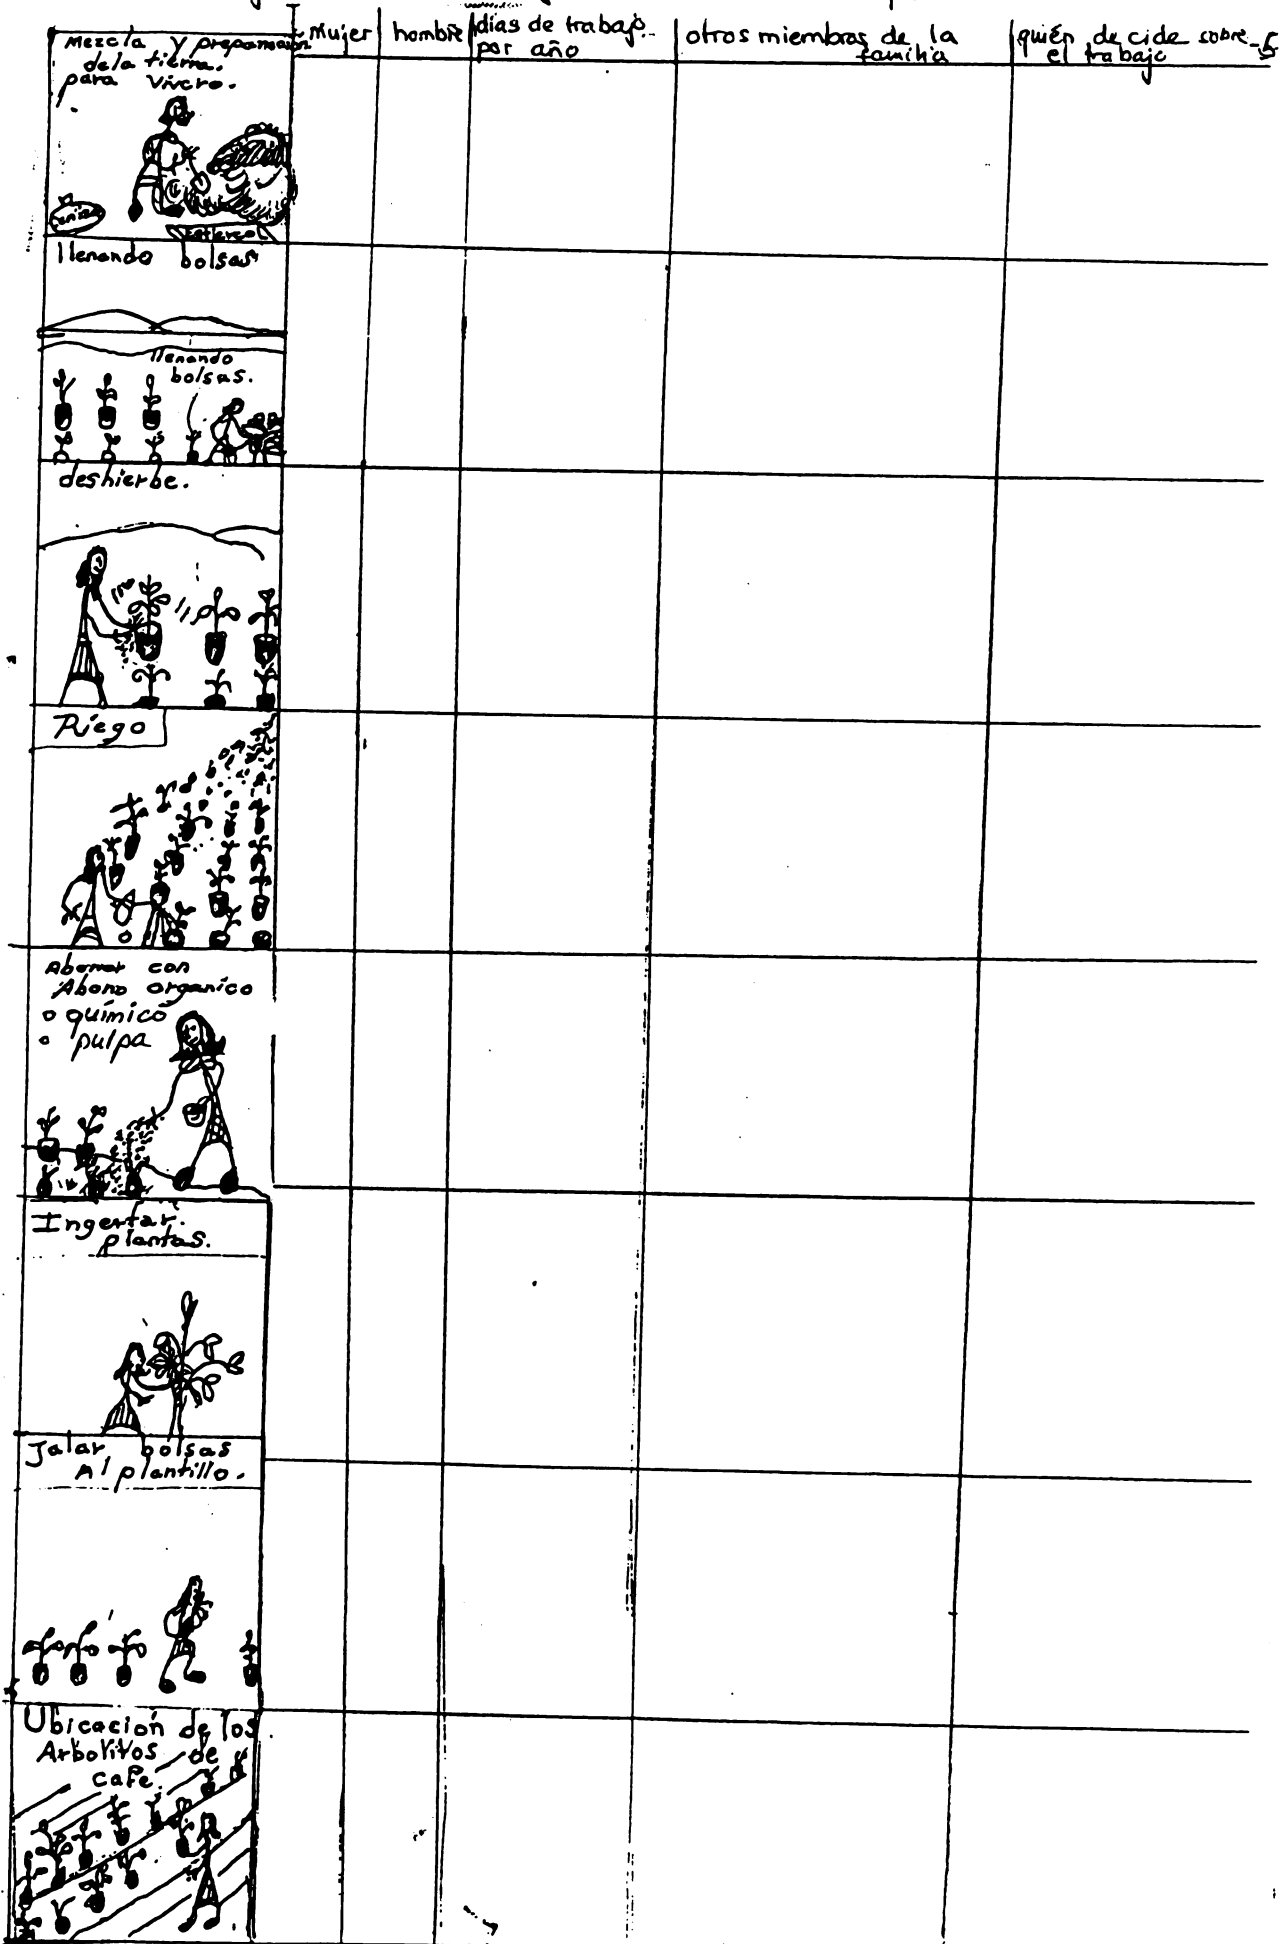 Mujer
hombre
días de trabajo
por año
otros miembros de la
familia
quién decide sobre
el trabajo
Mezcla y preparación
de la tierra
para vivero.
estiercol
llenando bolsas
llenando
bolsas.
deshierbe.
Riego
Abonar con
Abono organico
o químico
o pulpa
Ingertar
plantas.
Jalar bolsas
Al plantillo.
Ubicación de los
Arbolitos de
cafe.